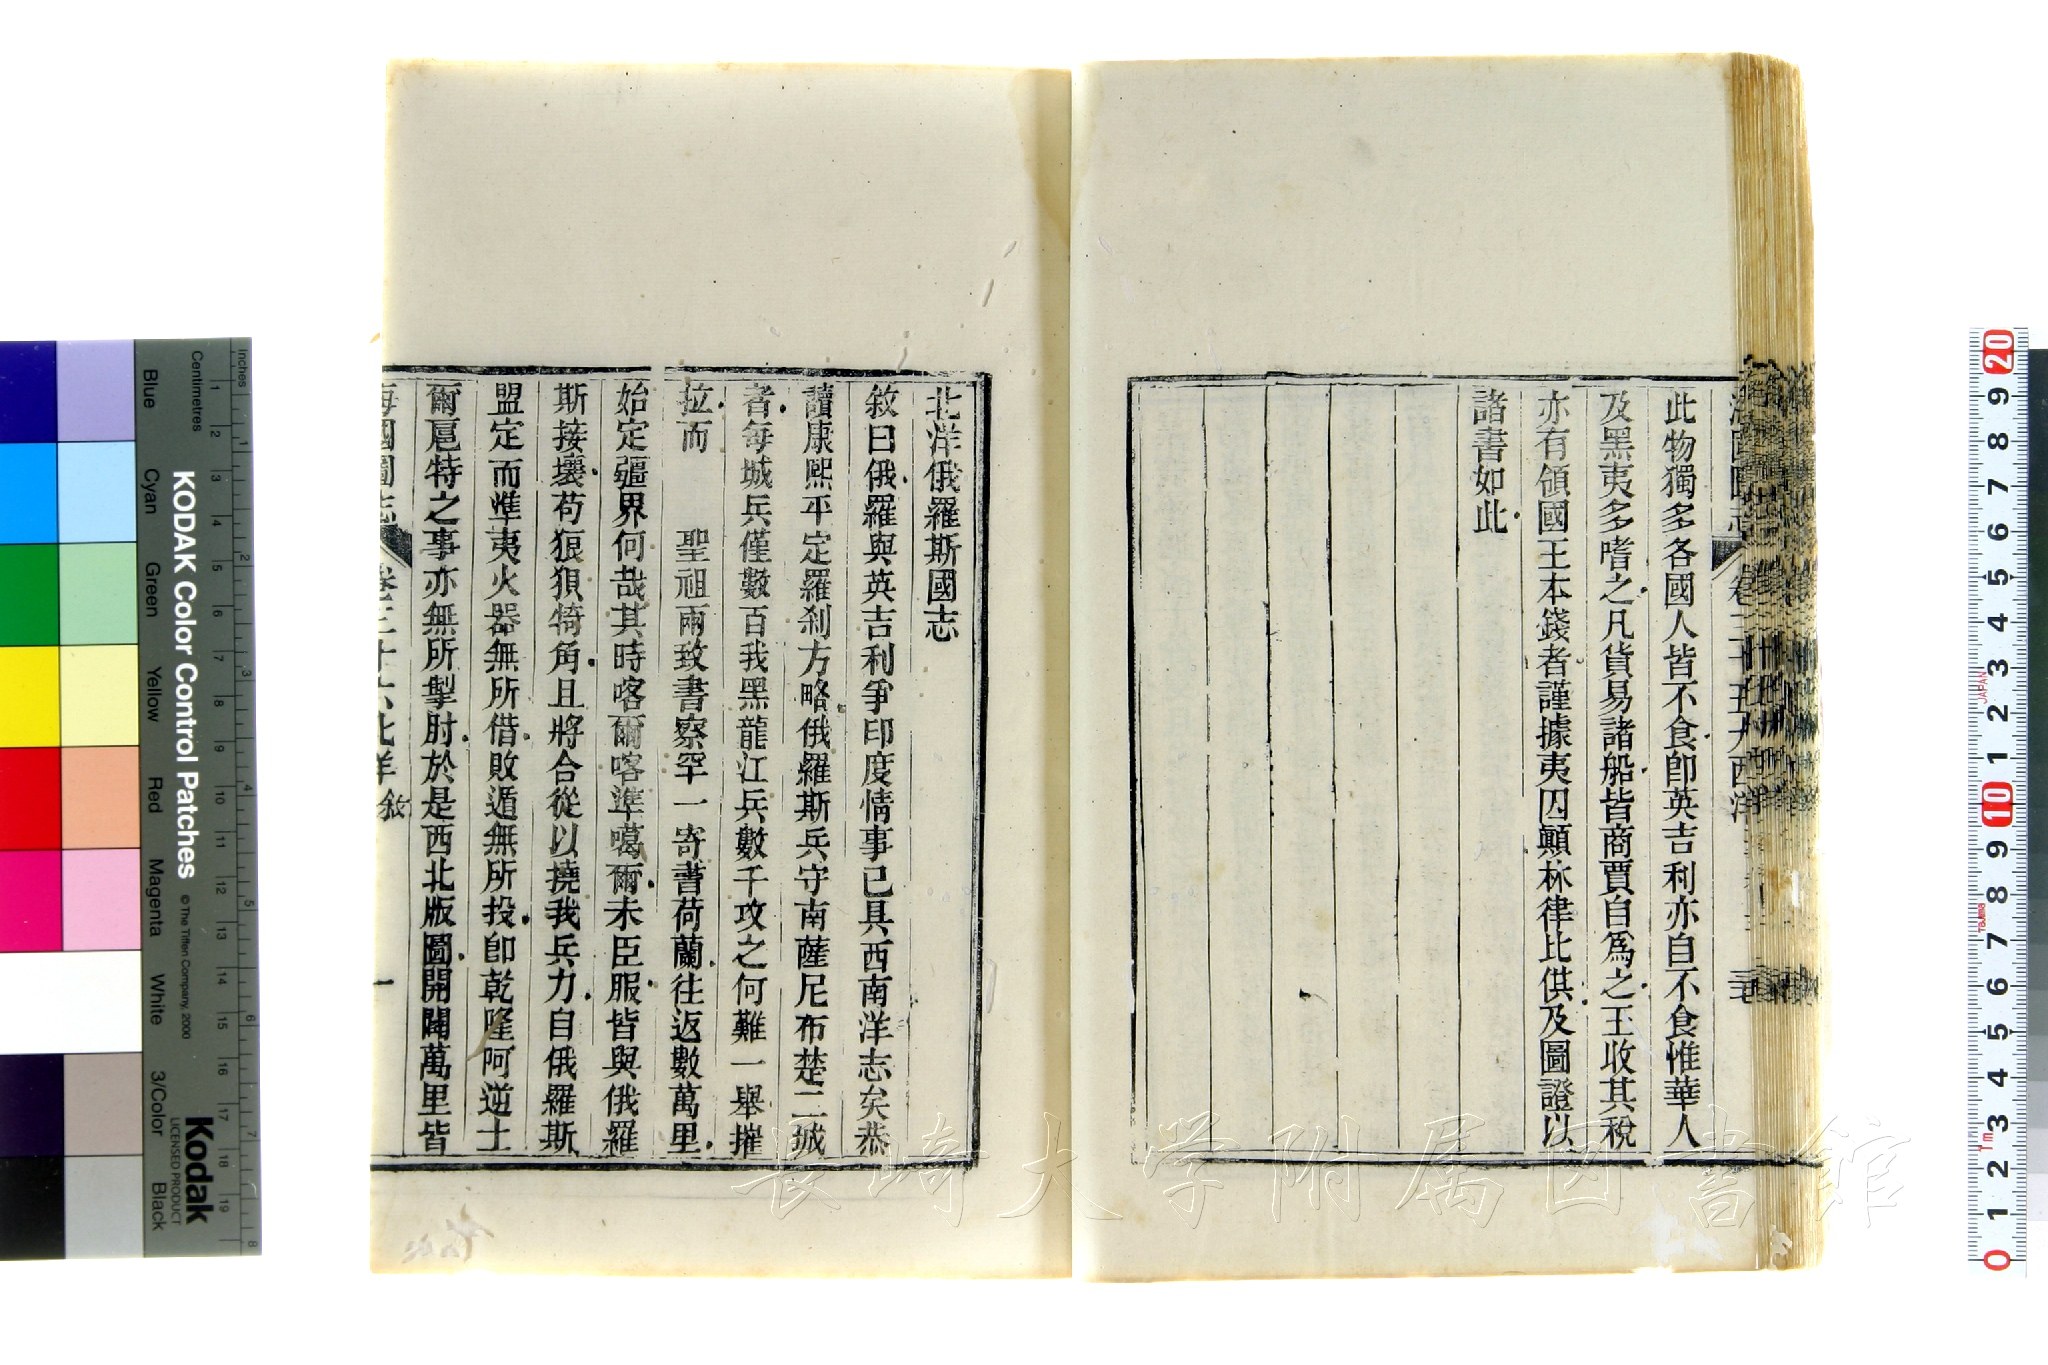 此物獨多各國人皆不食卽英吉利亦自不食惟華人
及黑夷多嗜之凡貨易諸船皆商賈自爲之王收其稅
亦有領國王本錢者謹據夷囚顚林律比供及圖證以
諸書如此
北洋俄羅斯國志
敘曰俄羅與英吉利爭印度情事已具西南洋志矣恭
讀康熙平定羅刹方略俄羅斯兵守南薩尼布楚二城
者每城兵僅數百我黑龍江兵數千攻之何難一舉摧
拉而 聖祖兩致書察罕一寄書荷蘭往返數萬里
始定疆界何哉其時喀爾喀準噶爾未臣服皆與俄羅
斯接壤苟狼狽犄角且將合從以撓我兵力自俄羅斯
盟定而準夷火器無所借敗遁無所投卽乾隆阿逆土
爾扈特之事亦無所掣肘於是西北版圖開闢萬里皆
海國圖志 卷三十六北洋 敘 一
長崎大学附属図書館
KODAK Color Control Patches
© The Tiffen Company, 2000
Kodak
LICENSED PRODUCT
Blue Cyan Green Yellow Red Magenta White 3/Color Black
Inches 1 2 3 4 5 6 7 8
Centimetres 1 2 3 4 5 6 7 8 9 10 11 12 13 14 15 16 17 18 19
20 9 8 7 6 5 4 3 2 1 10 9 8 7 6 5 4 3 2 1 0
JAPAN